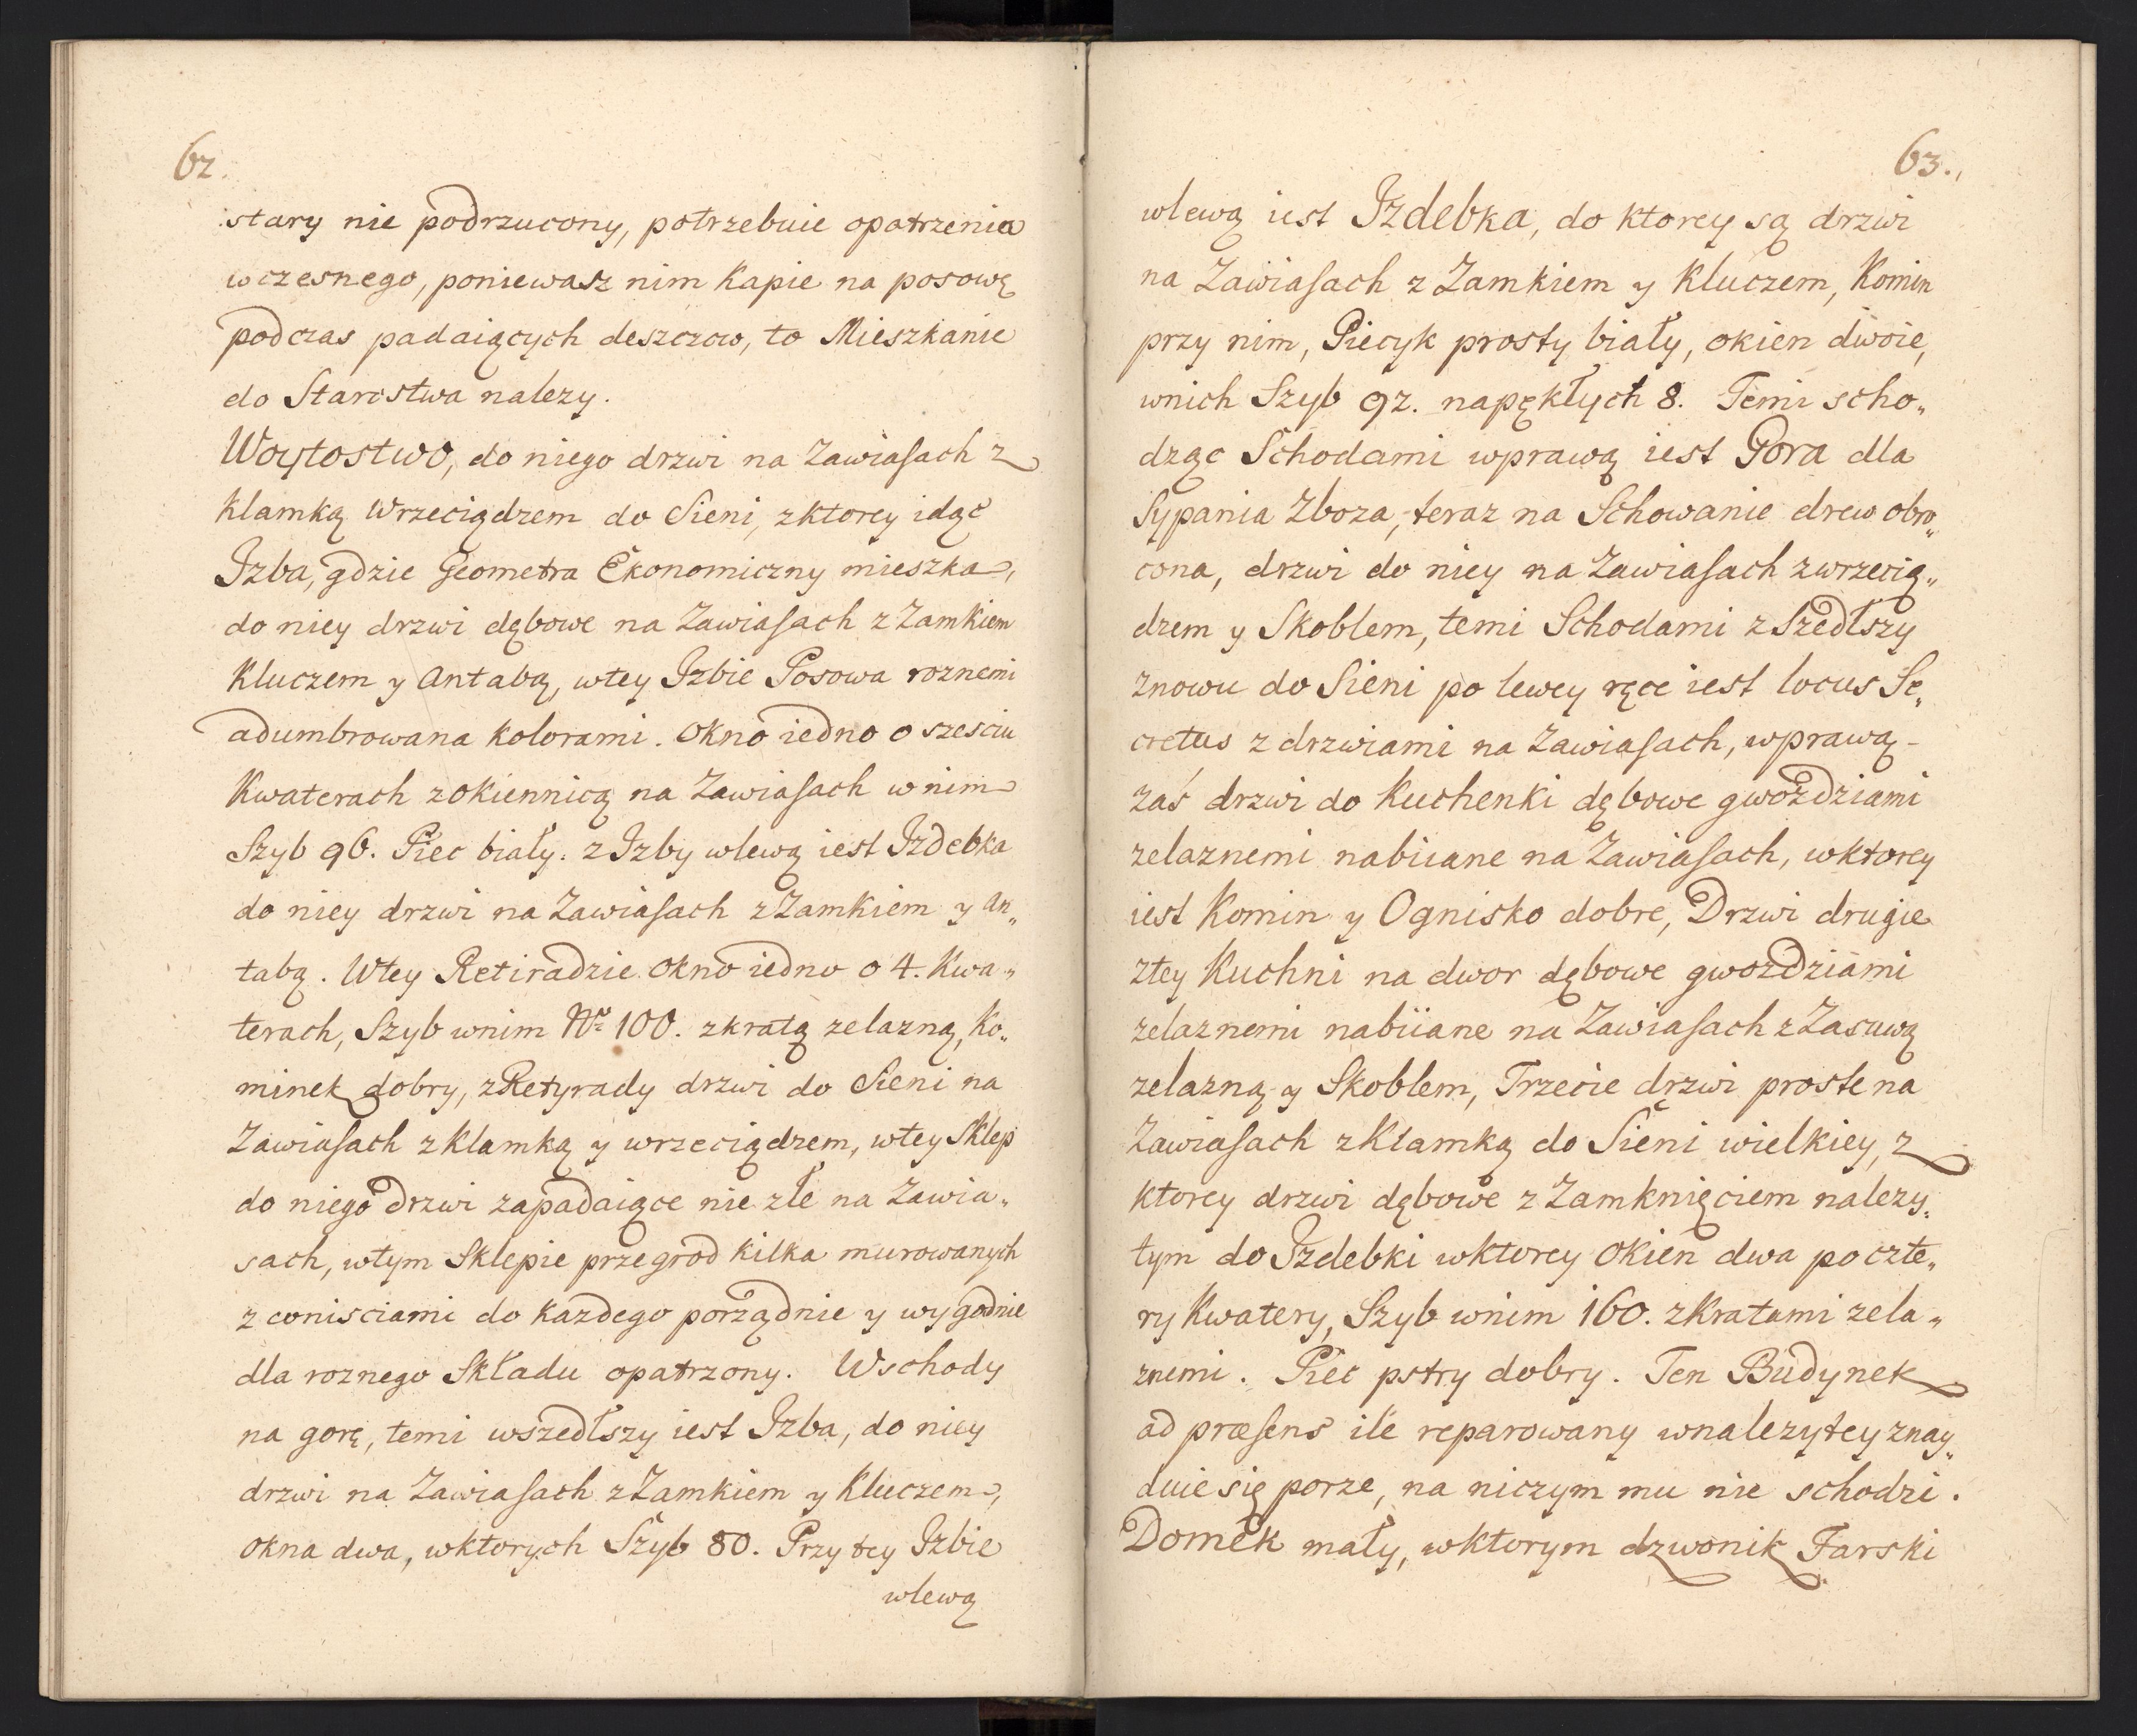 62.
stary nie podrzucony, potrzebuie opatrzenia
wczesnego, poniewasz nim Kapie na posowę
podczas padaiących deszczow, to Mieszkanie
do Starostwa nalezy.
Woytostwo, do niego drzwi na Zawiasach z
Klamką Wrzeciądzem do Sieni, z ktorey idąc
Izba, gdzie Geometra Ekonomiczny mieszka,
do niey drzwi dębowe na Zawiasach z Zamkiem
Kluczem y Antabą, wtey Izbie Posowa roznemi
adumbrowana Kolorami. Okno iedno o szesciu
Kwaterach z Okiennicą na Zawiasach w nim
Szyb 96. Piec biały. z Izby wlewą iest Izdebka
do niey drzwi na Zawiasach z Zamkiem y An„
tabą. Wtey Retiradzie Okno iedno o 4. Kwa„
terach, Szyb wnim No 100. zkratą zelazną, Ko„
minek dobry, z Retyrady drzwi do Sieni na
Zawiasach z Klamką y wrzeciądzem, wtey Sklep
do niego drzwi zapadaiące nie złe na Zawia„
sach, wtym Sklepie przegrod kilka murowanych
z coniściami do Kazdego porządnie y wygodnie
dla roznego Składu opatrzony. Wschody
na gorę, temi wszedłszy iest Izba, do niey
drzwi na Zawiasach z Zamkiem y Kluczem,
Okna dwa, wktorych Szyb 80. Przy tey Izbie
wlewą
63.
wlewą iest Izdebka, do ktorey są drzwi
na Zawiasach z Zamkiem y Kluczem, Komin
przy nim, Piecyk prosty biały, okien dwoie,
wnich Szyb 92. napękłych 8. Temi scho„
dząc Schodami wprawą iest Gora dla
Sypania Zboza, teraz na Schowanie drew obro„
cona, drzwi do niey na Zawiasach z wrzecią„
dzem y Skoblem, temi Schodami z Szedłszy
znowu do Sieni po lewey ręce iest locus Se„
cretus z drzwiami na Zawiasach, wprawą
zaś drzwi do Kuchenki dębowe gwoździami
zelaznemi nabiiane na Zawiasach, wktorey
iest Komin y Ognisko dobre, Drzwi drugie
ztey Kuchni na dwor dębowe gwozdziami
zelaznemi nabiiane na Zawiasach z Zasuwą
zelazną y Skoblem, Trzecie drzwi proste na
Zawiasach z Klamką do Sieni wielkiey, z
ktorey drzwi dębowe z Zamknięciem nalezy„
tym do Izdebki wktorey Okien dwa po czte„
ry Kwatery, Szyb wnim 160. z Kratami zela„
znemi. Piec pstry dobry. Ten Budynek
ad præsens ile reparowany wnalezytey znay„
duie się porze, na niczym mu nie schodzi.
Domek mały, wktorym dzwonik Farski